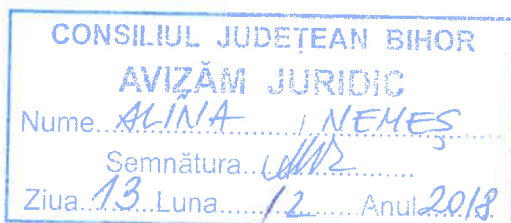 CONSILIUL JUDEȚEAN BIHOR
AVIZĂM JURIDIC
Nume..ALINA......../.NEMEȘ.....
Semnătura..................
Ziua..13..Luna......12......Anul.2018